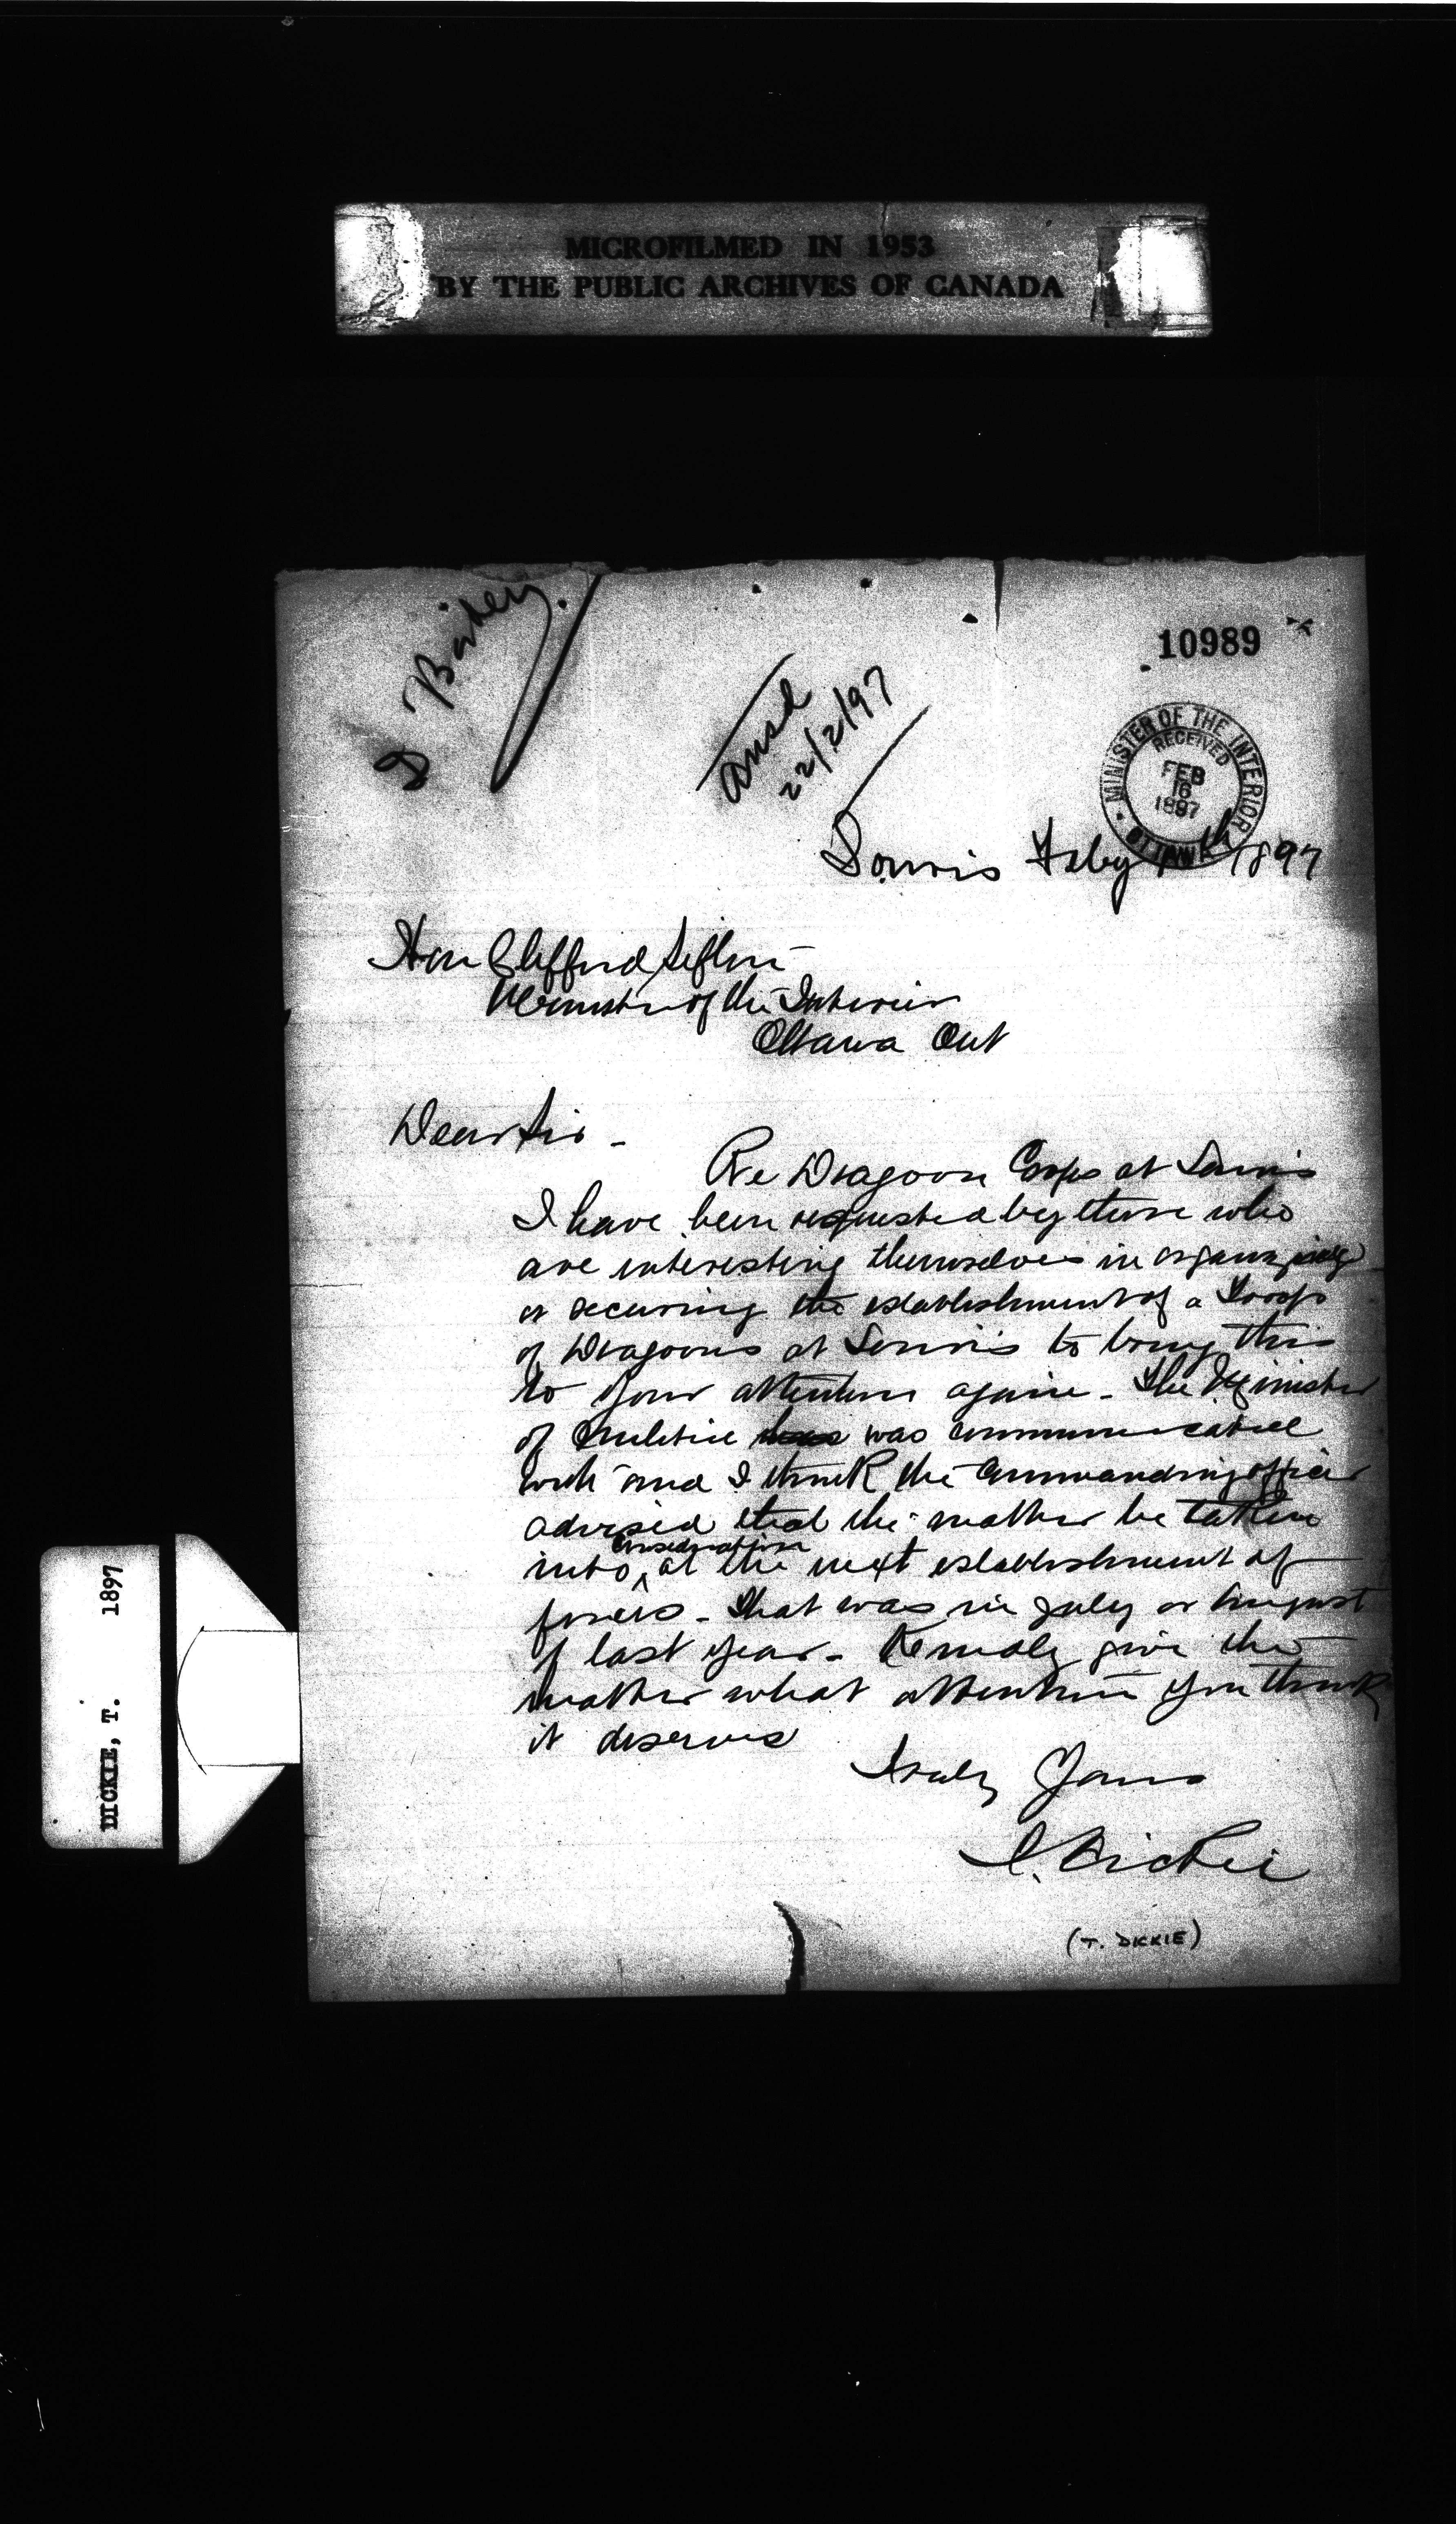 MICROFILMED IN 1953
BY THE PUBLIC ARCHIVES OF CANADA
10989
Ansd
22/2/97
MINISTER OF THE INTERIOR
RECEIVED
FEB
16
1897
OTTAWA
Souris Feby 1897
Hon Clifford Sifton
Minister of the Interior
Ottawa Ont
Dear Sir -
Re Dragoon Corps at Souris
I have been requested by those who
are interesting themselves in organizing
or securing the establishment of a Troop
of Dragoons at Souris to bring this
to your attention again - The Minister
of Militia was communicated
with and I think the Commanding officer
advised that the matter be taken
into consideration at the next establishment of
forces - That was in July or August
of last year - Kindly give the
matter what attention you think
it deserves
Truly Yours
T. Dickie
(T. DICKIE)
DICKIE, T. 1897